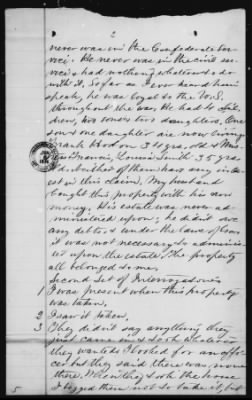 2
never was in the Confederate Ser-
vice. He never was in the civil ser-
vice & had nothing whatever to do
with it, So far as I ever heard him
speak, he was loyal to the U.S.
throughout the war. He had 4 chil-
dren, two sons & two daughters. One
son & one daughter are now living
Frank Hood on 34 yrs. old & Mrs.
Francis, Louisa Smith 35 yrs
old. Neither of them has any inter-
est in this claim. My husband
bought this property with his own
money. His estate was never ad-
ministered upon; he didn't owe
any debts & under the laws of
it was not necessary to adminis-
ter upon the estate. The property
all belonged to me.
Second Set of Interrogatories
1 I was present when this property
was taken.
2 I saw it taken.
3 They didn't say anything they
just came in & took whatever
they wanted. I looked for an offi-
cer but they said there was none
there. When they took the horse
I begged them not to take it, but
5